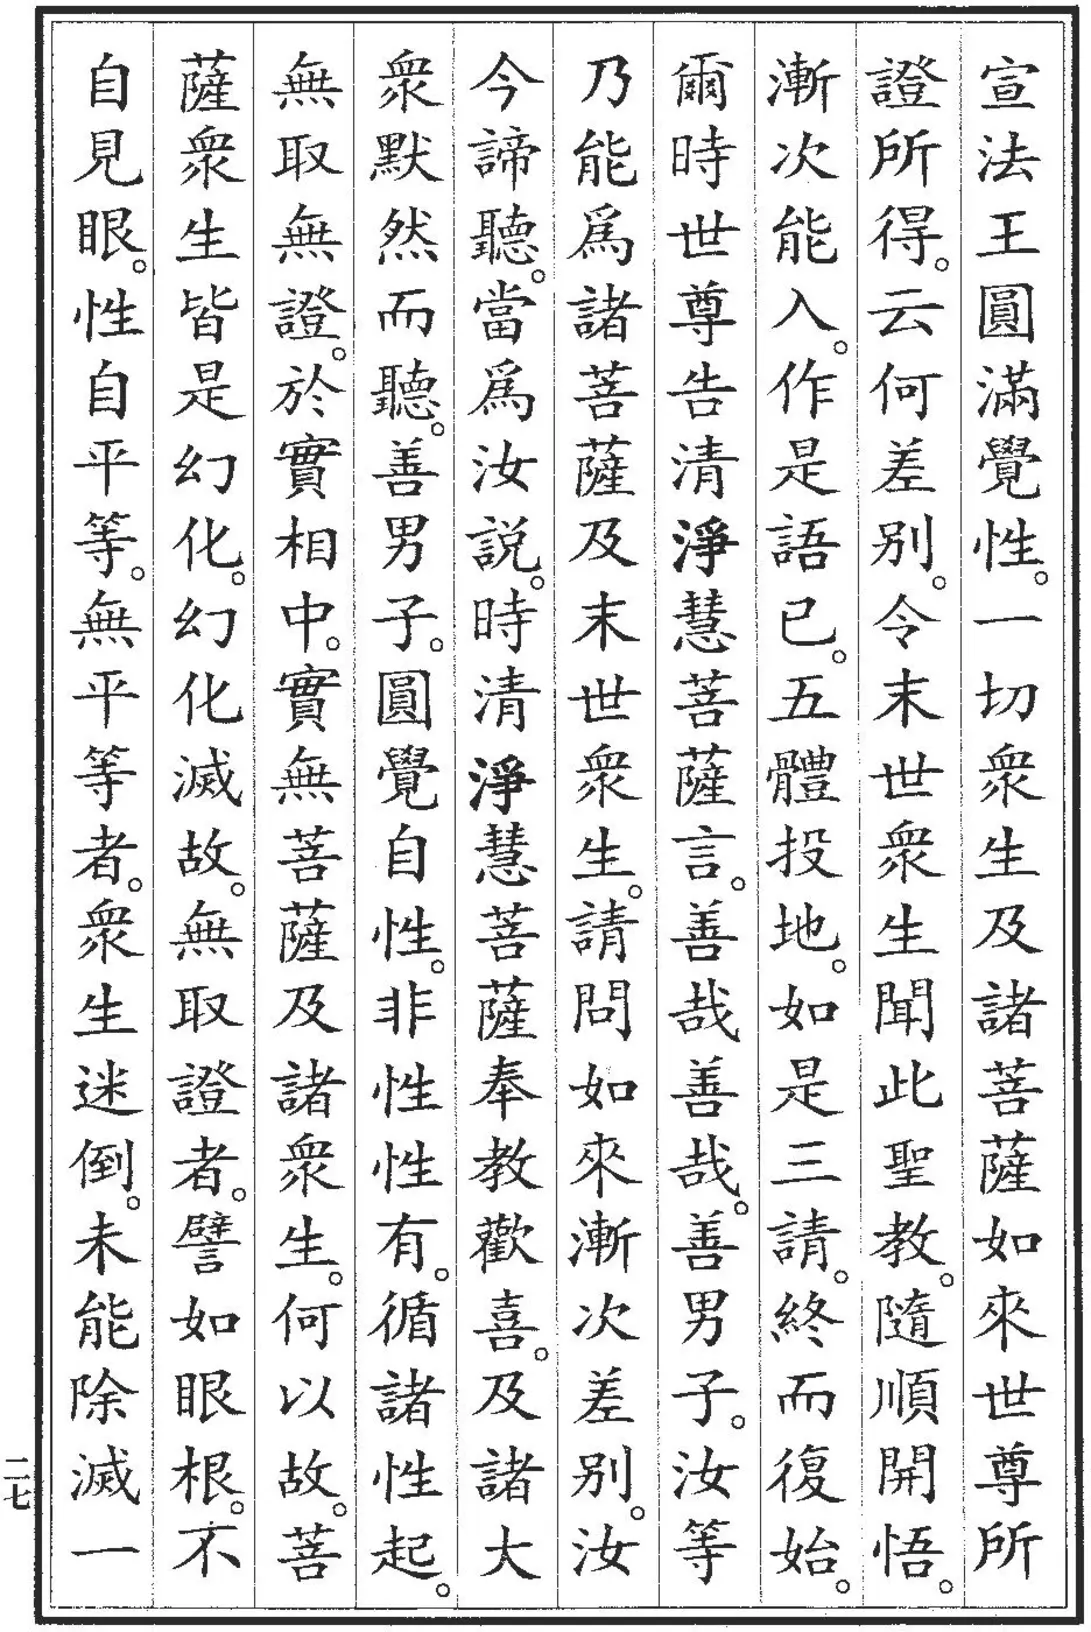 宣法王圓滿覺性。一切衆生及諸菩薩如來世尊所
證所得。云何差別。令末世衆生聞此聖教。隨順開悟。
漸次能入。作是語已。五體投地。如是三請。終而復始。
爾時世尊告清淨慧菩薩言。善哉善哉。善男子。汝等
乃能爲諸菩薩及末世衆生。請問如來漸次差別。汝
今諦聽。當爲汝說。時清淨慧菩薩奉教歡喜。及諸大
衆默然而聽。善男子。圓覺自性。非性性有。循諸性起。
無取無證。於實相中。實無菩薩及諸衆生。何以故。菩
薩衆生皆是幻化。幻化滅故。無取證者。譬如眼根。不
自見眼。性自平等。無平等者。衆生迷倒。未能除滅一
二七